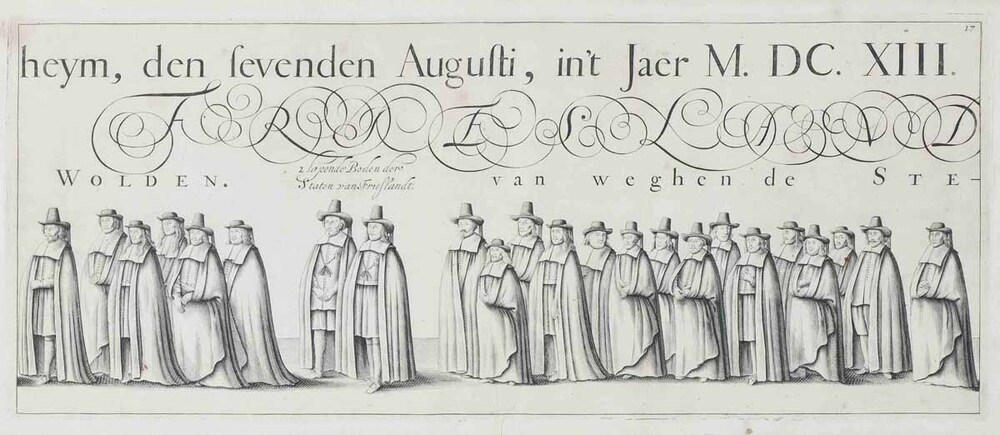 17
heym, den ſevenden Auguſti, in't Jaer M. DC. XIII.
FRIESLAND
2 lopende Boden der
Staten van Frieſlandt.
WOLDEN. van weghen de STE-